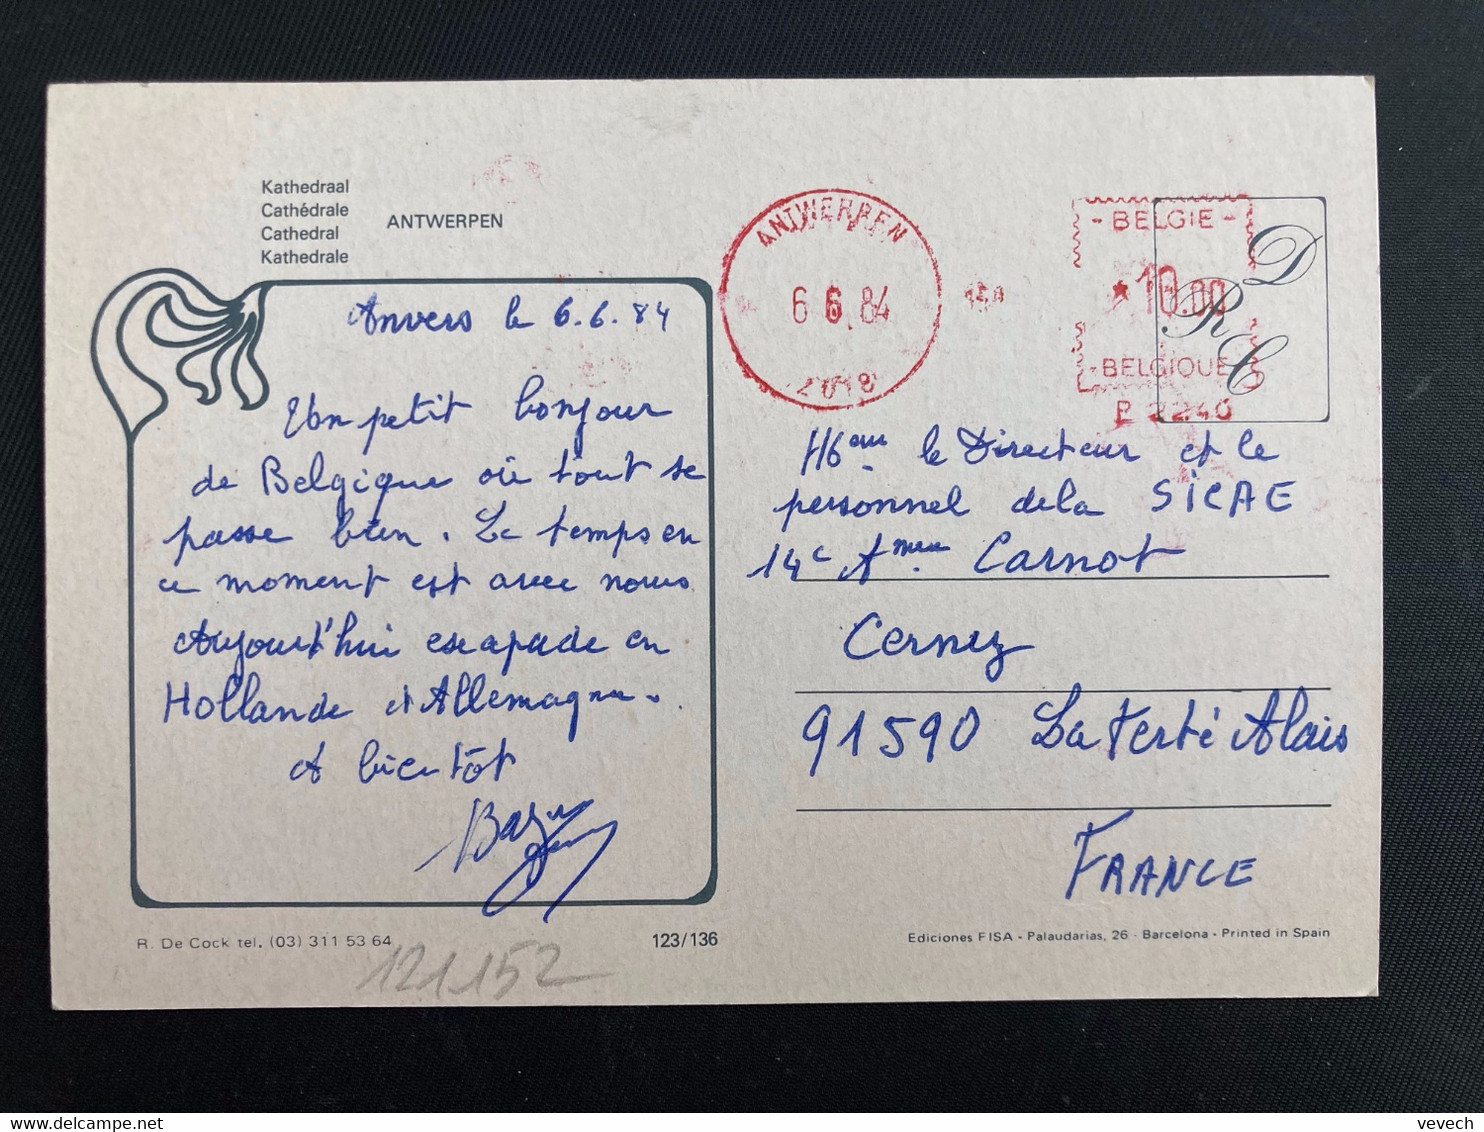 Kathedraal
Cathédrale
Cathedral
Kathedrale
ANTWERPEN
Anvers le 6.6.84
Un petit bonjour
de Belgique où tout se
passe bien. Le temps en
ce moment est avec nous
Aujourd'hui escapade en
Hollande et Allemagne.
A bientôt
R. De Cock tel. (03) 311 53 64
123/136
121152
ANTWERPEN
6 6.84
- BELGIE -
*10.00
- BELGIQUE -
P 2240
DRC
le Directeur et le
personnel de la SICAE
14 Carnot
Cerny
91590 La Ferté Alais
FRANCE
Ediciones FISA - Palaudarias, 26 - Barcelona - Printed in Spain
vevech